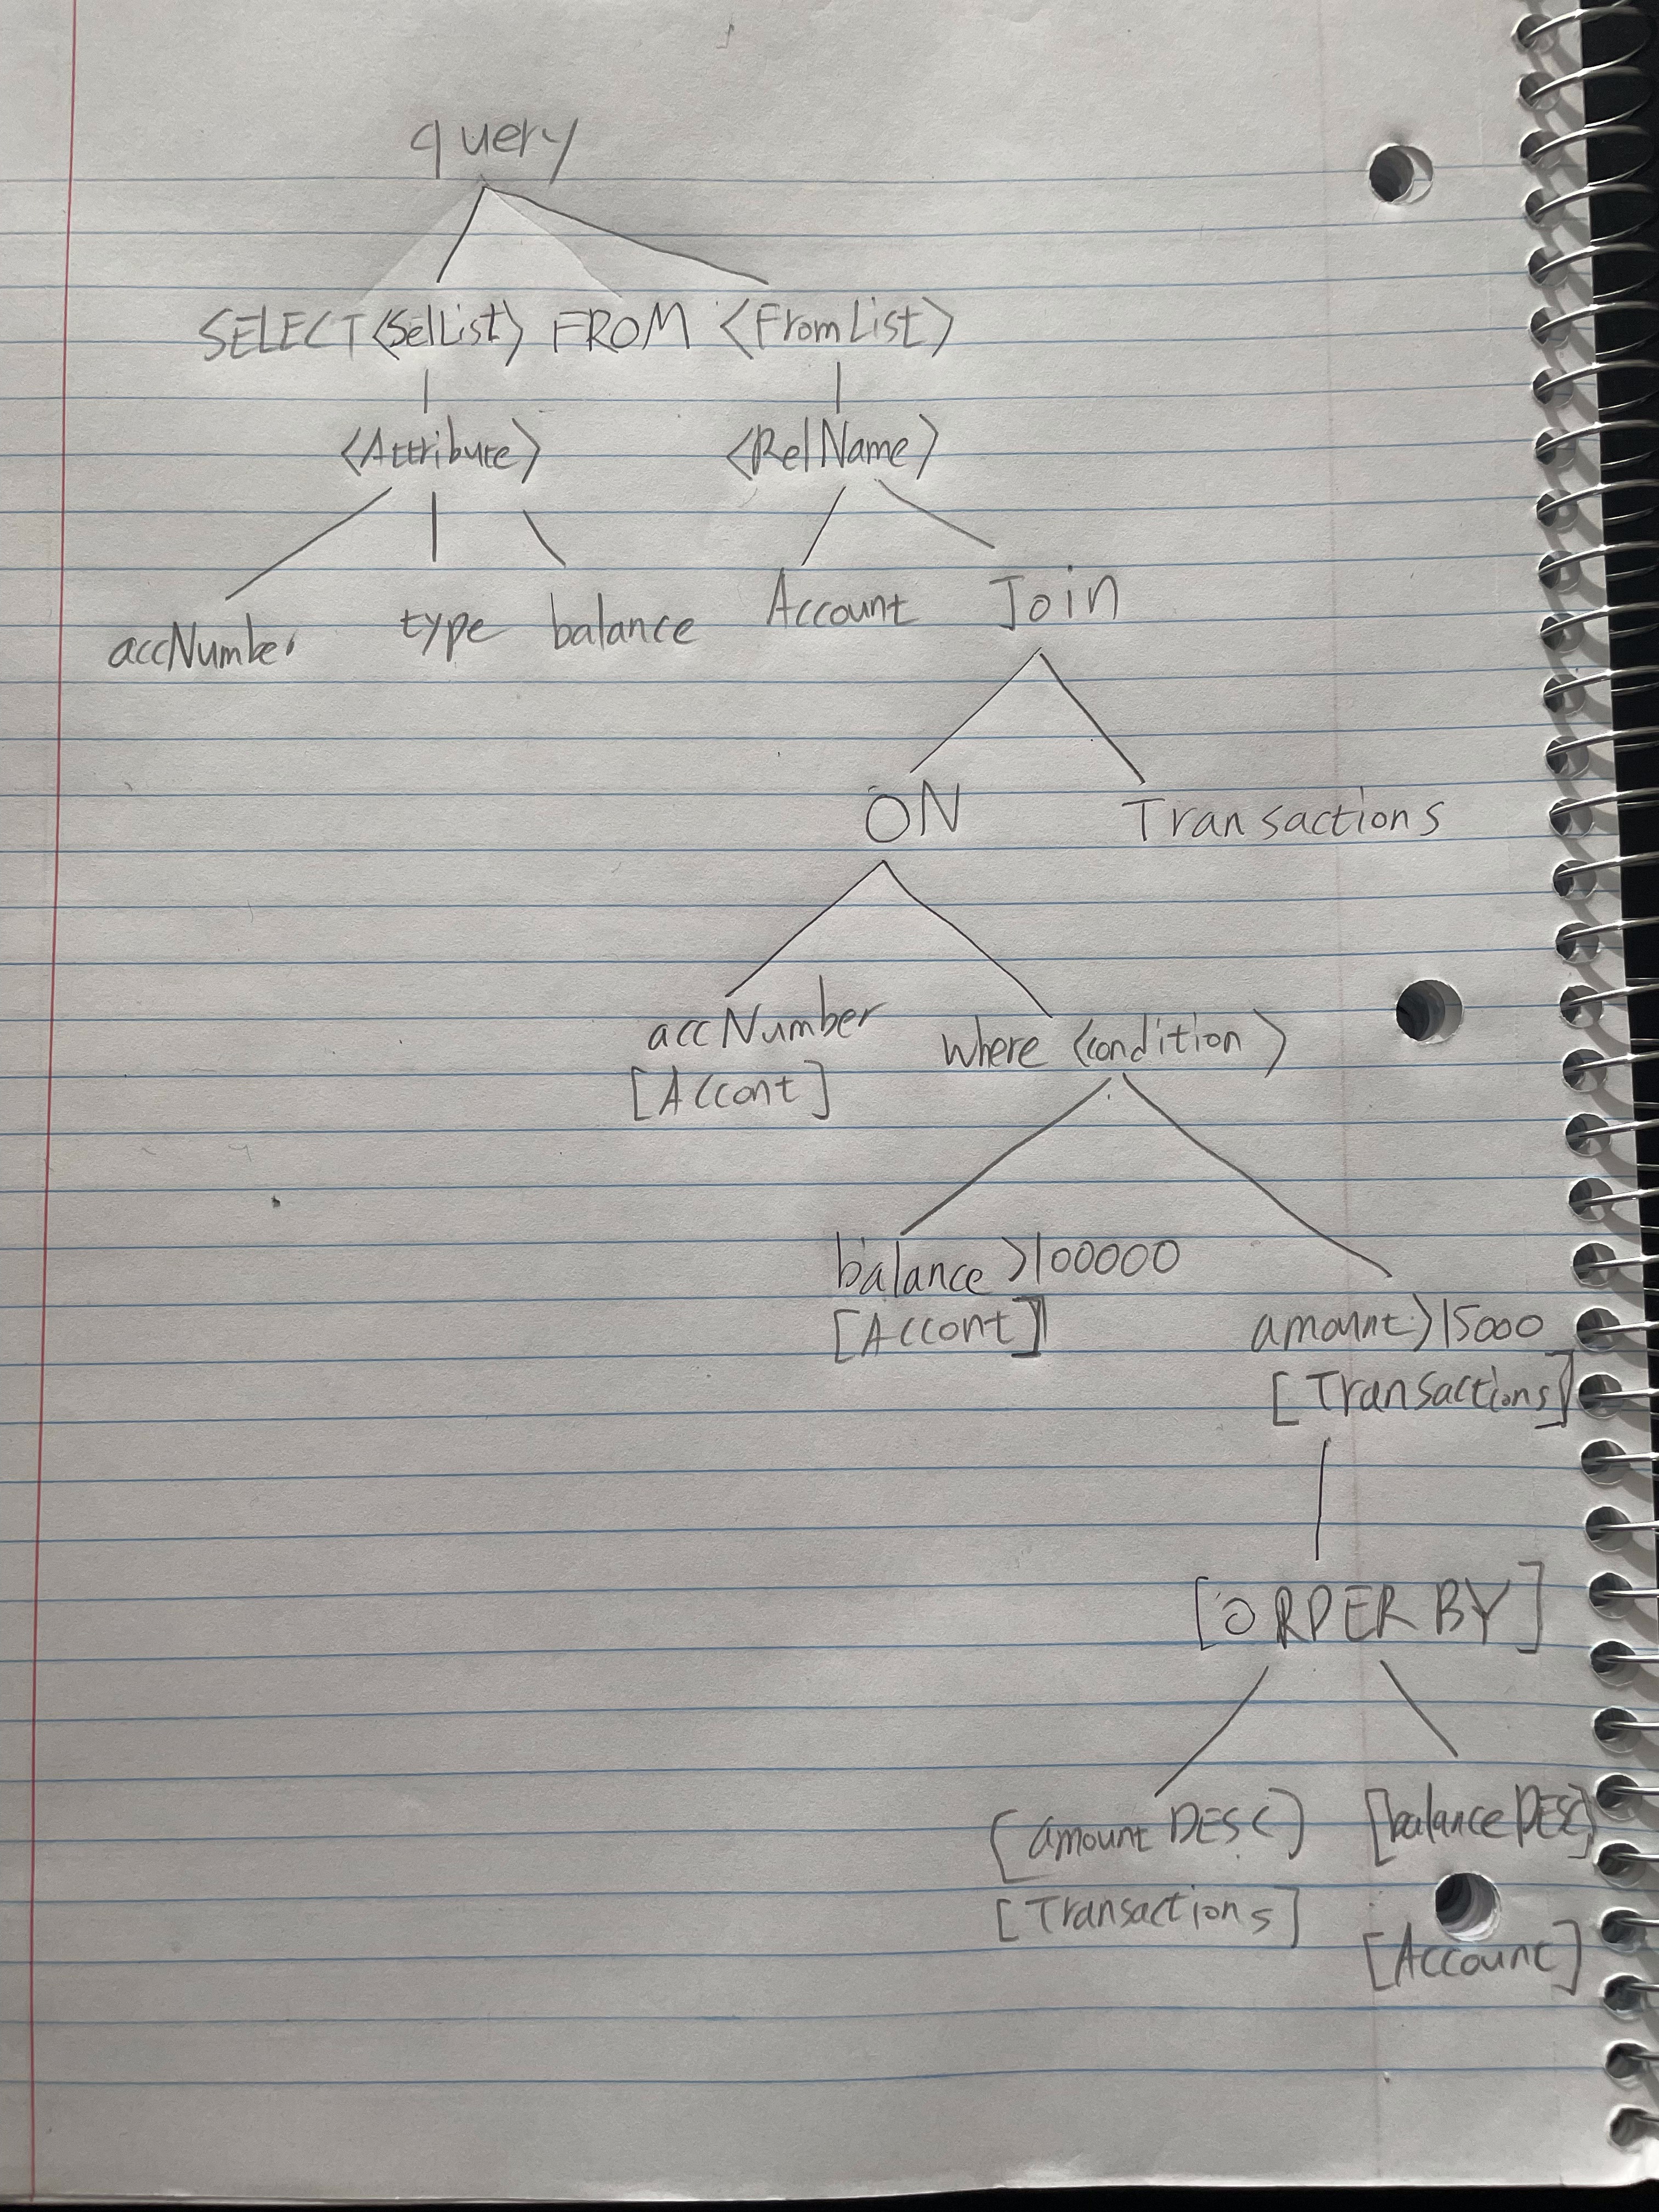 query
SELECT <SelList> FROM <FromList>
<Attribute> <RelName>
accNumber type balance Account Join
ON Transactions
accNumber where <condition>
[Accont]
balance >100000
[Accont] amount>15000
[Transactions]
[ORDER BY]
[amount DESC] [balance DESC]
[Transactions] [Account]